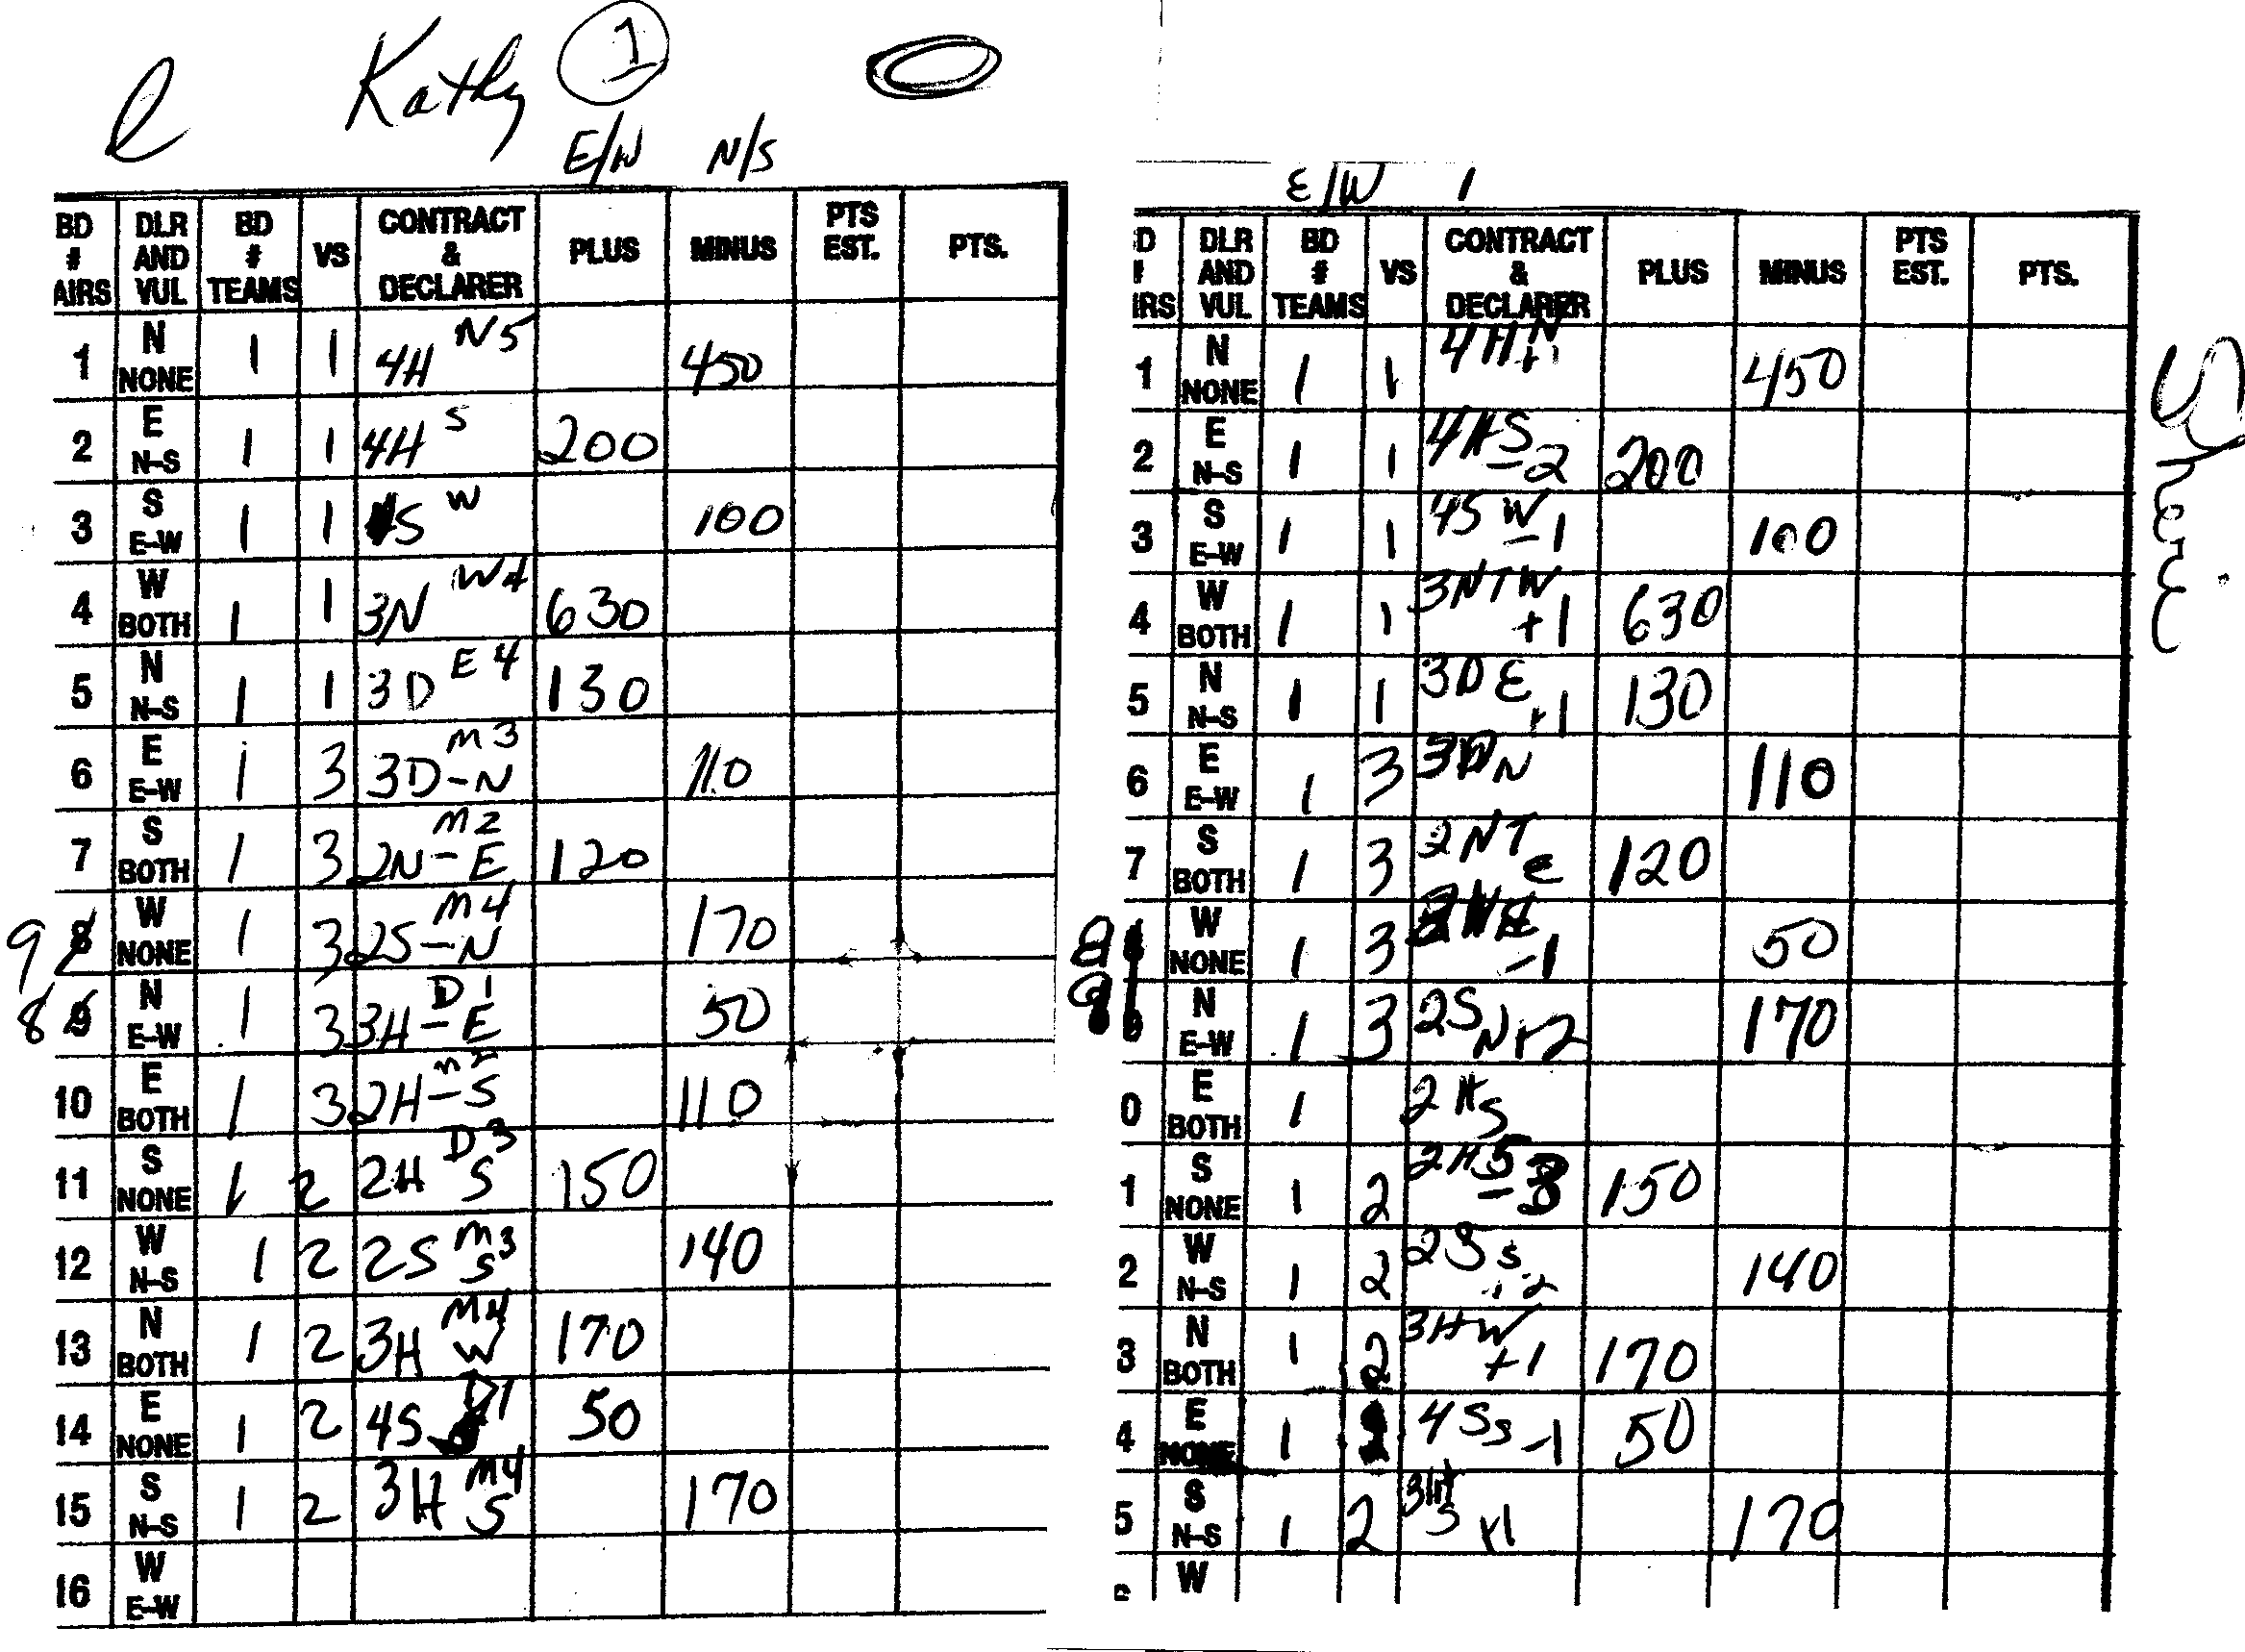 Kathy 1
E/W N/S
BD # AIRS DLR AND VUL BD # TEAMS VS CONTRACT & DECLARER PLUS MINUS PTS EST. PTS.
1 N NONE 1 1 4H N5 450
2 E N-S 1 1 4H S 200
3 S E-W 1 1 4S W 100
4 W BOTH 1 1 3N W4 630
5 N N-S 1 1 3D E4 130
6 E E-W 1 3 3D-N M3 110
7 S BOTH 1 3 2N-E M2 120
9 8 W NONE 1 3 2S-N M4 170
8 9 N E-W 1 3 3H-E D1 50
10 E BOTH 1 3 2H-S M2 110
11 S NONE 1 2 2H S D3 150
12 W N-S 1 2 2S S M3 140
13 N BOTH 1 2 3H W M4 170
14 E NONE 1 2 4S D1 50
15 S N-S 1 2 3H S M4 170
16 W E-W
E/W 1
D # IRS DLR AND VUL BD # TEAMS VS CONTRACT & DECLARER PLUS MINUS PTS EST. PTS.
1 N NONE 1 1 4H N +1 450
2 E N-S 1 1 4H S -2 200
3 S E-W 1 1 4S W -1 100
4 W BOTH 1 1 3NT W +1 630
5 N N-S 1 1 3D E +1 130
6 E E-W 1 3 3D N 110
7 S BOTH 1 3 2NT E 120
W NONE 1 3 -1 50
N E-W 1 3 2S N +2 170
0 E BOTH 1 2H S
1 S NONE 1 2 2H S -3 150
2 W N-S 1 2 2S S 140
3 N BOTH 1 2 3H W +1 170
4 E NONE 1 4S S -1 50
5 S N-S 1 2 3H S +1 170
W